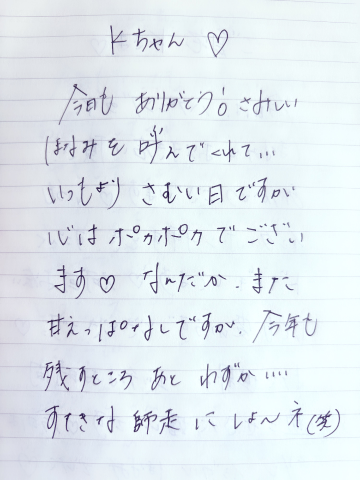 Kちゃん ♡
今日も ありがとう!! さみしい
ほなみを 呼んでくれて...
いつもより さむい日ですが
心は ポカポカで ござい
ます♡ なんだか、また
甘えっぱなしですが、今年も
残すところ あと わずか....
すてきな 師走に しよ〜ネ(笑)